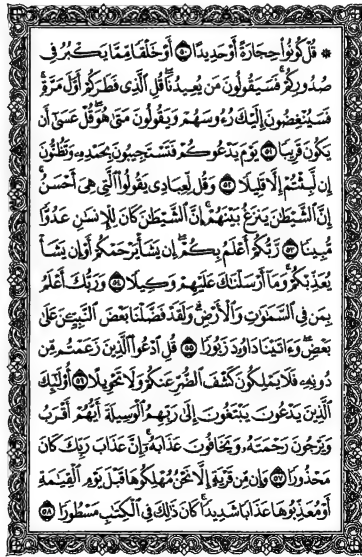 ۞ قُلْ كُونُوا۟ حِجَارَةً أَوْ حَدِيدًا ٥٠ أَوْ خَلْقًا مِّمَّا يَكْبُرُ فِى
صُدُورِكُمْ ۚ فَسَيَقُولُونَ مَن يُعِيدُنَا ۖ قُلِ ٱلَّذِى فَطَرَكُمْ أَوَّلَ مَرَّةٍ ۚ
فَسَيُنْغِضُونَ إِلَيْكَ رُءُوسَهُمْ وَيَقُولُونَ مَتَىٰ هُوَ ۖ قُلْ عَسَىٰٓ أَن
يَكُونَ قَرِيبًا ٥١ يَوْمَ يَدْعُوكُمْ فَتَسْتَجِيبُونَ بِحَمْدِهِۦ وَتَظُنُّونَ
إِن لَّبِثْتُمْ إِلَّا قَلِيلًا ٥٢ وَقُل لِّعِبَادِى يَقُولُوا۟ ٱلَّتِى هِىَ أَحْسَنُ ۚ
إِنَّ ٱلشَّيْطَٰنَ يَنزَغُ بَيْنَهُمْ ۚ إِنَّ ٱلشَّيْطَٰنَ كَانَ لِلْإِنسَٰنِ عَدُوًّا
مُّبِينًا ٥٣ رَّبُّكُمْ أَعْلَمُ بِكُمْ ۖ إِن يَشَأْ يَرْحَمْكُمْ أَوْ إِن يَشَأْ
يُعَذِّبْكُمْ ۚ وَمَآ أَرْسَلْنَٰكَ عَلَيْهِمْ وَكِيلًا ٥٤ وَرَبُّكَ أَعْلَمُ
بِمَن فِى ٱلسَّمَٰوَٰتِ وَٱلْأَرْضِ ۗ وَلَقَدْ فَضَّلْنَا بَعْضَ ٱلنَّبِيِّۦنَ عَلَىٰ
بَعْضٍ ۖ وَءَاتَيْنَا دَاوُۥدَ زَبُورًا ٥٥ قُلِ ٱدْعُوا۟ ٱلَّذِينَ زَعَمْتُم مِّن
دُونِهِۦ فَلَا يَمْلِكُونَ كَشْفَ ٱلضُّرِّ عَنكُمْ وَلَا تَحْوِيلًا ٥٦ أُو۟لَٰٓئِكَ
ٱلَّذِينَ يَدْعُونَ يَبْتَغُونَ إِلَىٰ رَبِّهِمُ ٱلْوَسِيلَةَ أَيُّهُمْ أَقْرَبُ
وَيَرْجُونَ رَحْمَتَهُۥ وَيَخَافُونَ عَذَابَهُۥٓ ۚ إِنَّ عَذَابَ رَبِّكَ كَانَ
مَحْذُورًا ٥٧ وَإِن مِّن قَرْيَةٍ إِلَّا نَحْنُ مُهْلِكُوهَا قَبْلَ يَوْمِ ٱلْقِيَٰمَةِ
أَوْ مُعَذِّبُوهَا عَذَابًا شَدِيدًا ۚ كَانَ ذَٰلِكَ فِى ٱلْكِتَٰبِ مَسْطُورًا ٥٨